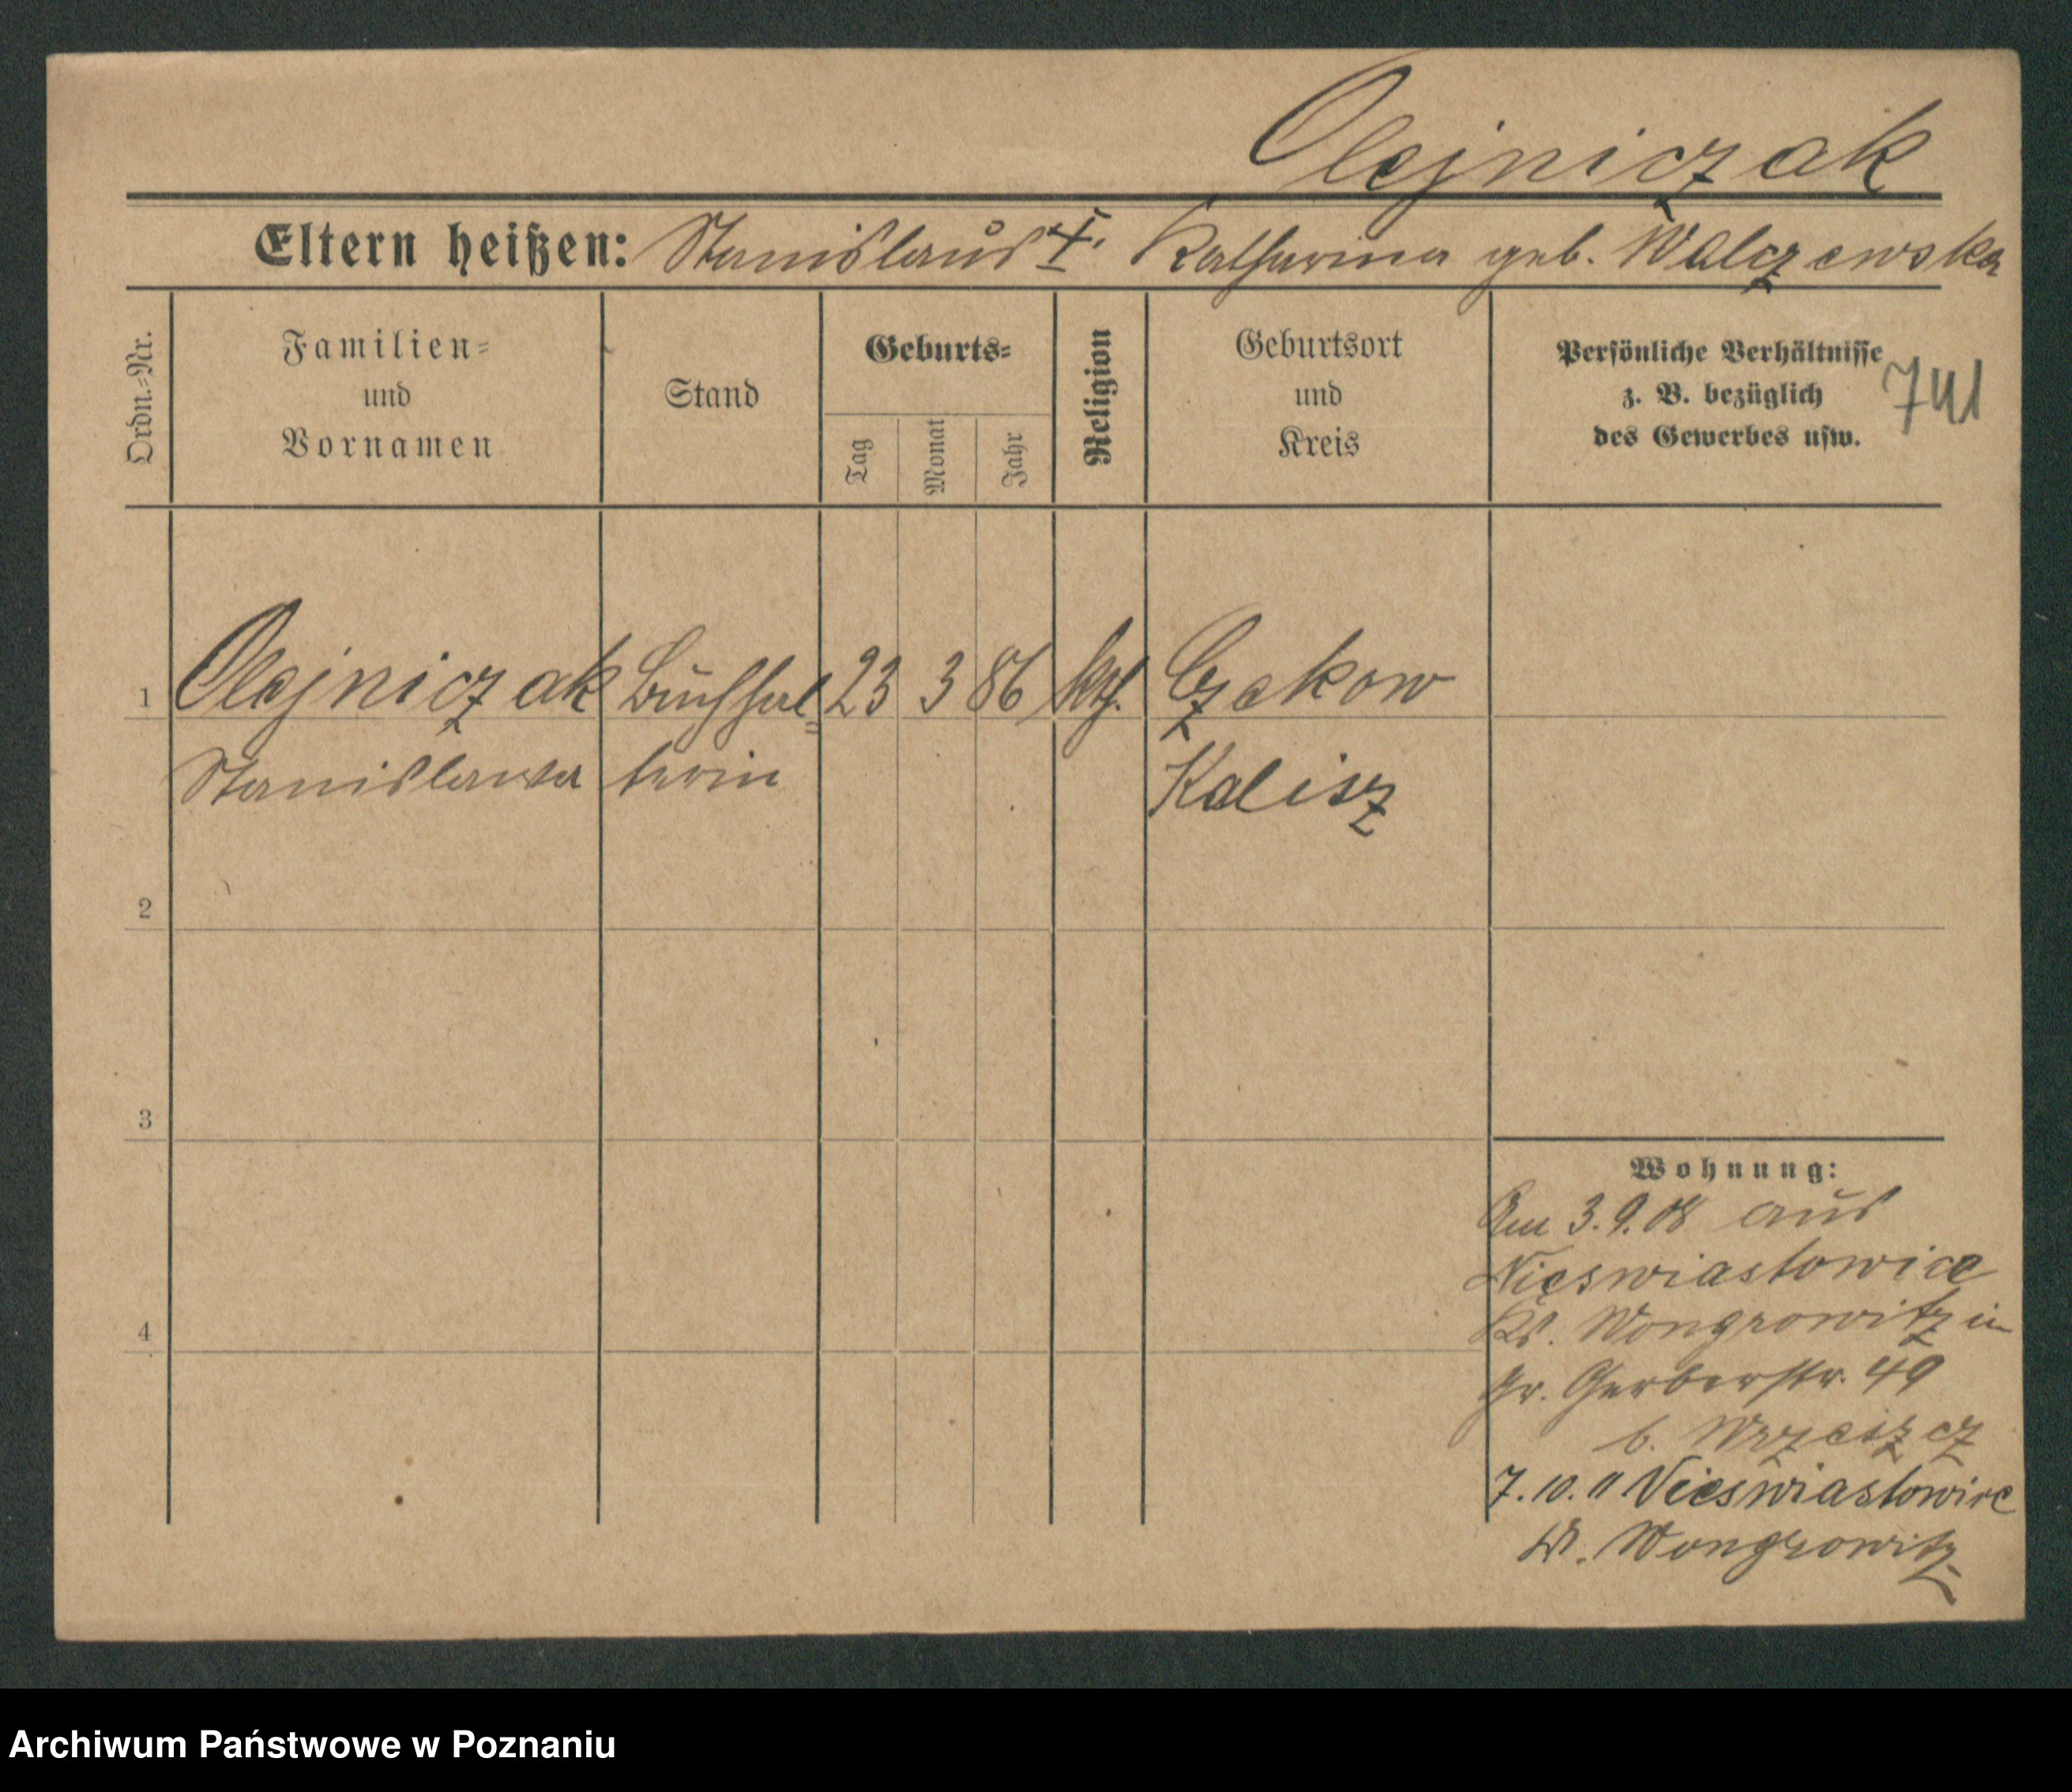 Olejniczak
Eltern heißen: Stanislaus † Katharina geb. Walczewska
Ordn.=Nr.
Familien=
und
Vornamen
Stand
Geburts=
Tag
Monat
Jahr
Religion
Geburtsort
und
Kreis
Persönliche Verhältnisse
z. B. bezüglich
des Gewerbes usw.
741
1 Olejniczak Buchhal= 23 3 86 kath. Czekow
Stanislawa terin Kalisz
2
3
4
Wohnung:
Am 3.9.08 aus
Nieswiastowice
Kr. Wongrowitz in
Gr. Gerberstr. 49
b. Wrzeszcz
7.10.11 Nieswiastowice
Kr. Wongrowitz
Archiwum Państwowe w Poznaniu